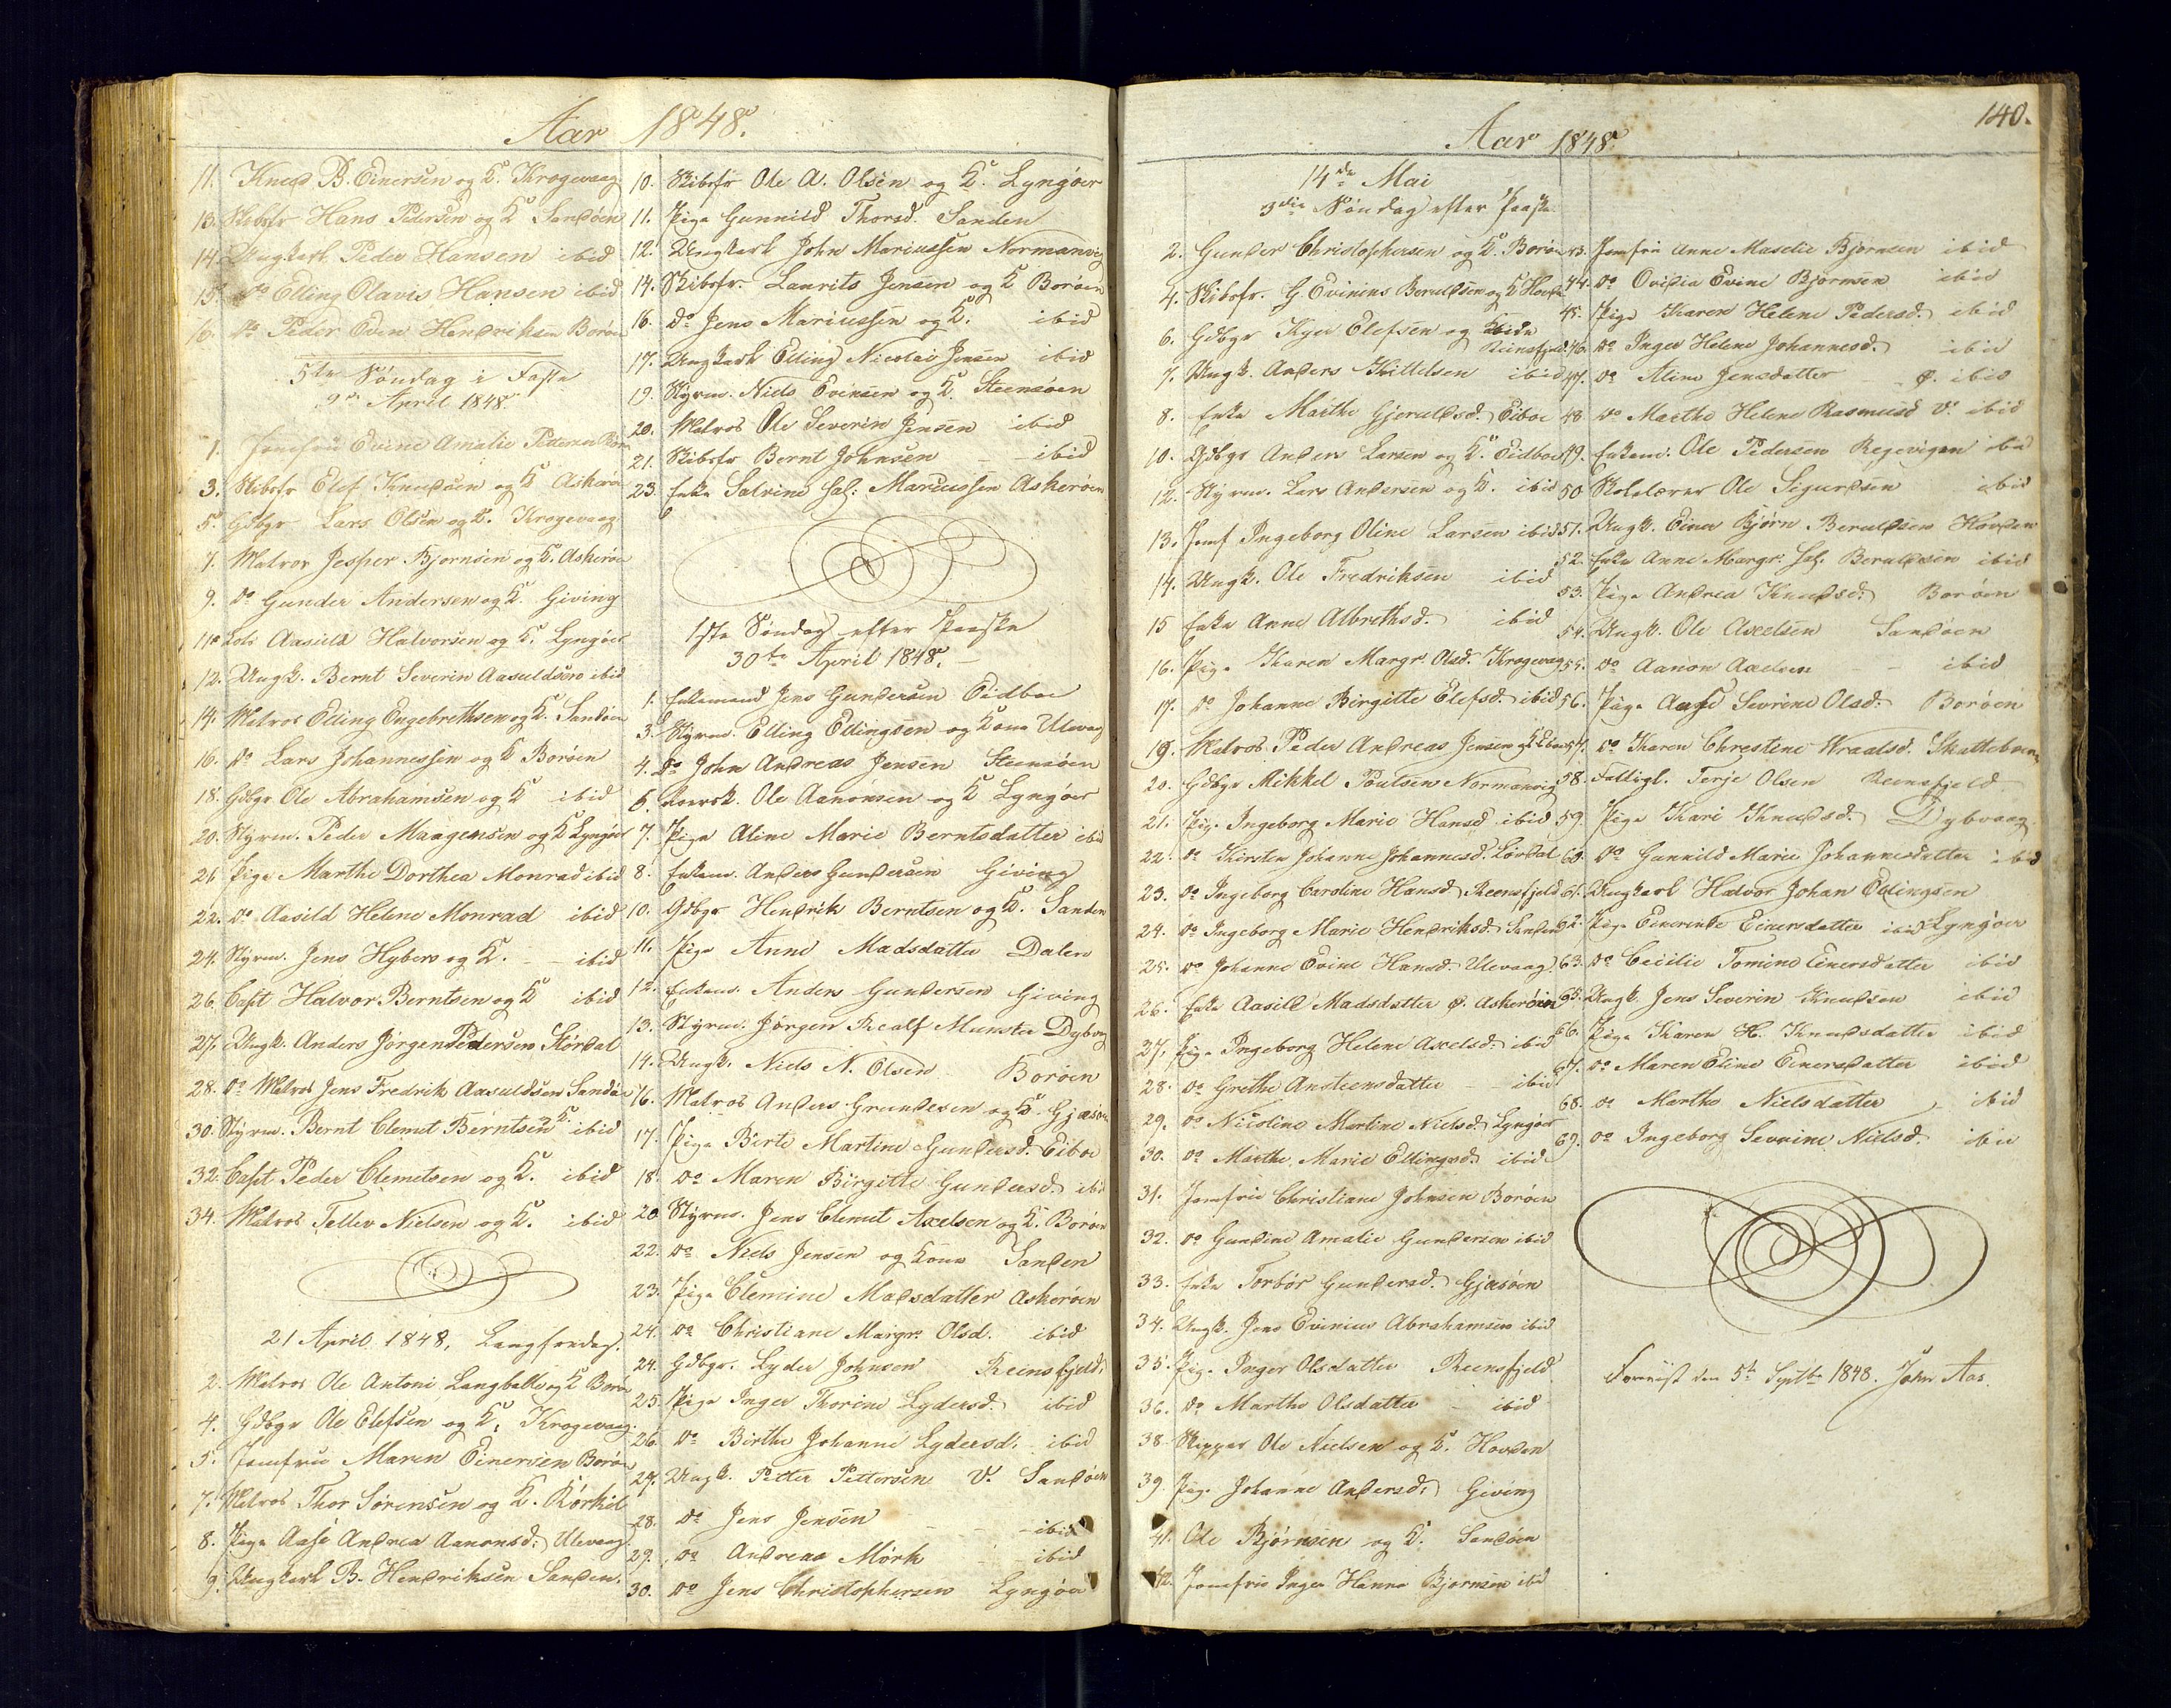 Aar 1848.
11. Knud B. Einersen og K. Krogevaag
13. Skibsfr Hans Pedersen og K Sandøen
14. Ungkarl Peder Hansen ibid
15. do Elling Olavis Hansen ibid
16. do Peder Even Hendriksen Borøen
5te Søndag i Faste
9de April 1848.
1. Jomfru Evine Amalie Pettersen Borøen
3. Skibsfr Elef Knudsen og K Askerøen
5. Gdbgr Lars Olsen og K. Krogevaag
7. Matros Jesper Bjørnsen og K. Askerøen
9. do Gunder Andersen og K. Giving
11. Lods Aasild Halvorsen og K. Lyngøer
12. Ungk. Bernt Severin Aasuldsen ibid
14. Matros Elling Engebrethsen og K. Sandøen
16. do Lars Johannessen og K Borøen
18. Gdbgr Ole Abrahamsen og K ibid
20. Styrm. Peder Maagensen og K Lyngøer
21. Pige Marthe Dorthea Monrad ibid
22. do Aasild Helene Monrad ibid
24. Styrm. Jens Hybers og K. ibid
26. Capt Halvor Berntsen og K ibid
27. Ungk. Anders Jørgen Pedersen Størdal
28. do Matros Jens Fredrik Aasuldsen Sandøen
30. Styrm. Bernt Clemet Berntsen og K. ibid
32. Capt Peder Clemetsen og K. ibid
34. Matros Tellev Nielsen og K. ibid
21 April 1848, Langfredag.
2. Matros Ole Antoni Langballe og K Borøen
4. Gdbgr Ole Elefsen og K. Krogevaag.
5. Jomfru Maren Einersen Borøen
7. Matros Thor Sørensen og K. Kørkil
8. Pige Aase Andrea Aanonsd: Ulevaag
9. Ungkarl B. Hendriksen Sanden.
10. Skibsfr Ole A. Olsen og K. Lyngøer
11. Pige Gunnild Thorsd. Sanden
12. Ungkarl John Mariussen Normanvig
14. Skibsfr. Laurits Jensen og K Borøen
16. do Jens Mariussen og K. ibid
17. Ungkarl Elling Nicolai Jensen ibid
19. Styrm. Niels Evensen og K. Steensøen
20. Matros Ole Severin Jensen ibid
21. Skibsfr Bernt Johnsen ibid
23. Enke Salvine Sal: Marcussen Askerøen
1ste Søndag efter Paaske
30te April 1848.
1. Enkemand Jens Gundersen Eidboe
3. Styrm. Elling Ellingsen og Kone Ulevaag
4. do John Andreas Jensen Steensøen
6. Ole Aanonsen og K Lyngøer
7. Pige Aline Marie Berntsdatter ibid
8. Enkem. Anders Gundersen Giving
10. Gdbgr Hendrik Berntsen og K. Sanden
11. Pige Anne Madsdatter Dalen
12. Enkem. Anders Gundersen Giving
13. Styrm. Jørgen Realf Munster Dybvaag
14. Ungk. Niels N. Olsen Borøen
16. Matros Anders Gundersen og K. Gjæsøen
17. Pige Berte Martine Gundersd. Eiboe
18. do Maren Birgitte Gundersd. ibid
20. Styrm. Jens Clemet Axelsen og K. Borøen
22. do Niels Jensen og Kone Sanden
23. Pige Clemine Madsdatter Askerøen
24. do Christiane Margr. Olsd. ibid
24. Gdbgr. Lyder Johnsen Reensfjeld
25. Pige Inger Thorine Lydersd. ibid
26. do Birthe Johanne Lydersd. ibid
27. Ungk. Petter Pettersen V. Sandøen
28. do Jens Jensen ibid
29. do Andreas Mørk ibid
30. do Jens Christophersen Lyngøer
140.
Aar 1848.
14de Mai
3die Søndag efter Paaske
2. Gunder Christophersen og K. Borøen
4. Skibsfr. G. Evinius Beruldsen og K Hovden
6. Gdbgr Kjer Elefsen og Reinsfjeld
7. Ungk. Anders Kittelsen ibid
8. Enke Marthe Gjeruldsd. Eiboe
10. Gdbgr Anders Larsen og K. Eidboe
12. Styrm. Lars Andersen og K. ibid
13. Jomf Ingeborg Oline Larsen ibid
14. Ungk. Ole Fredriksen ibid
15 Enke Anne Albrethsd. ibid
16. Pige Karen Margr. Olsd. Krogevaag
17. do Johanne Birgitte Elefsd. ibid
19. Matros Peder Andreas Jensen og K Eiboe
20. Gdbgr Mikkel Poulsen Normanvig
21. Pige Ingeborg Marie Hansd ibid
22. do Kirsten Johanne Johannesd. Lørdal
23. do Ingeborg Caroline Hansd Reensfjeld
24. do Ingeborg Marie Hendriksd. Sanden
25. do Johanne Evine Hansd. Ulevaag
26. Enke Aasild Madsdatter Askerøen
27. Pige Ingeborg Helene Axelsd: ibid
28. do Grethe Ansteensdatter ibid
29. do Nicoline Martine Nielsd. Lyngøer
30. do Marthe Marie Ellingsd. ibid
31. Jomfru Christiane Johnsen Borøen
32. do Gundine Amalie Gundersen ibid
33. Enke Torbør Gundersd. Gjæsøen
34. Ungk. Jens Evinius Abrahamsen ibid
35. Pige Inger Olsdatter Reensfjeld
36. do Marthe Olsdatter ibid
38. Skipper Ole Nielsen og K. Hovden
39. Pige Johanne Andersd: Giving
41. Ole Bjørnsen og K. Sandøen
42. Jomfru Inger Hanne Bjørnsen ibid
43. Jomfru Anne Maselie Bjørnsen ibid
44. do Ovidia Evine Bjørnsen ibid
45. Pige Karen Helene Pedersd. ibid
46. do Inger Helene Johannesd. ibid
47. do Aline Jensdatter ibid
48. do Marthe Helene Rasmusd V. ibid
49. Enkem. Ole Pedersen Regevigen ibid
50 Skolelærer Ole Sigurdsen ibid
51. Ungk. Einer Bjørn Beruldsen Hovden
52. Enke Anne Margr. Sal. Beruldsen ibid
53. Pige Andrea Knudsd: Borøen
54. Ungk. Ole Axelsen Sandøen
55. do Aanon Axelsen ibid
56. Pige Aase Sevrine Olsd: Borøen
57. do Karen Chrestine Wraalsd. Skatteboen
58. Fattigl. Terje Olsen Reensfjeld
59. Pige Kari Knudsd. Dybvaag
60. do Gunnild Marie Johannesdatter ibid
61. Ungkarl Halvor Johan Ellingsen
62. Pige Einerinte Einersdatter ibid Lyngøer
63. do Cecilie Tomine Einersdatter ibid
65. Ungk. Jens Severin Knudsen ibid
66. Pige Karen H. Knudsdatter ibid
67. do Maren Eline Einersdatter ibid
68. do Marthe Nielsdatter ibid
69. do Ingeborg Sevrine Nielsd. ibid
Foreviist den 5te Septbr 1848. John Aas.